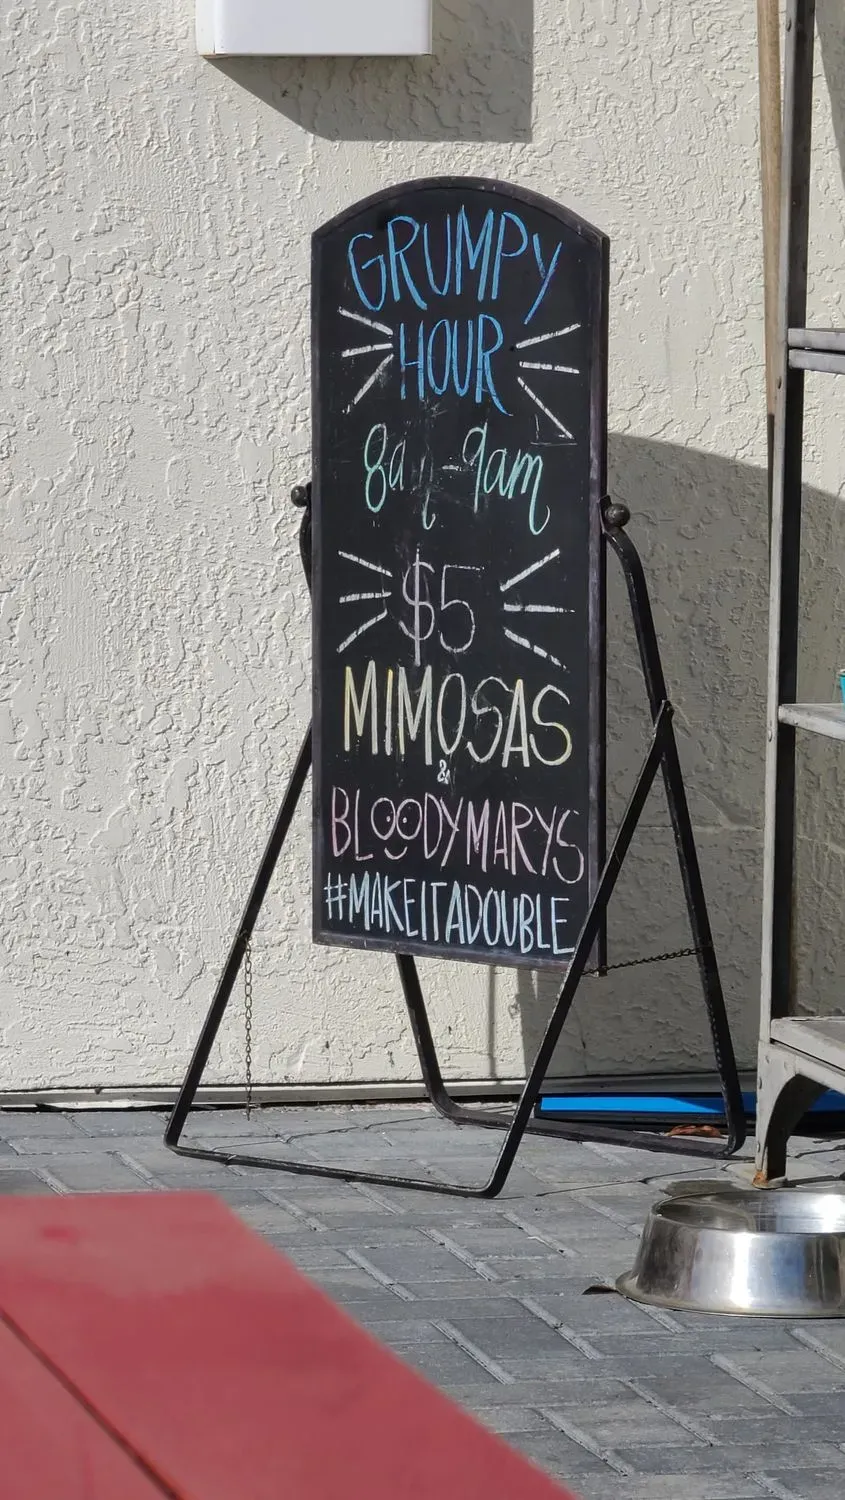 GRUMPY
HOUR
8am-9am
$5
MIMOSAS
&
BLOODY MARYS
#MAKEITADOUBLE